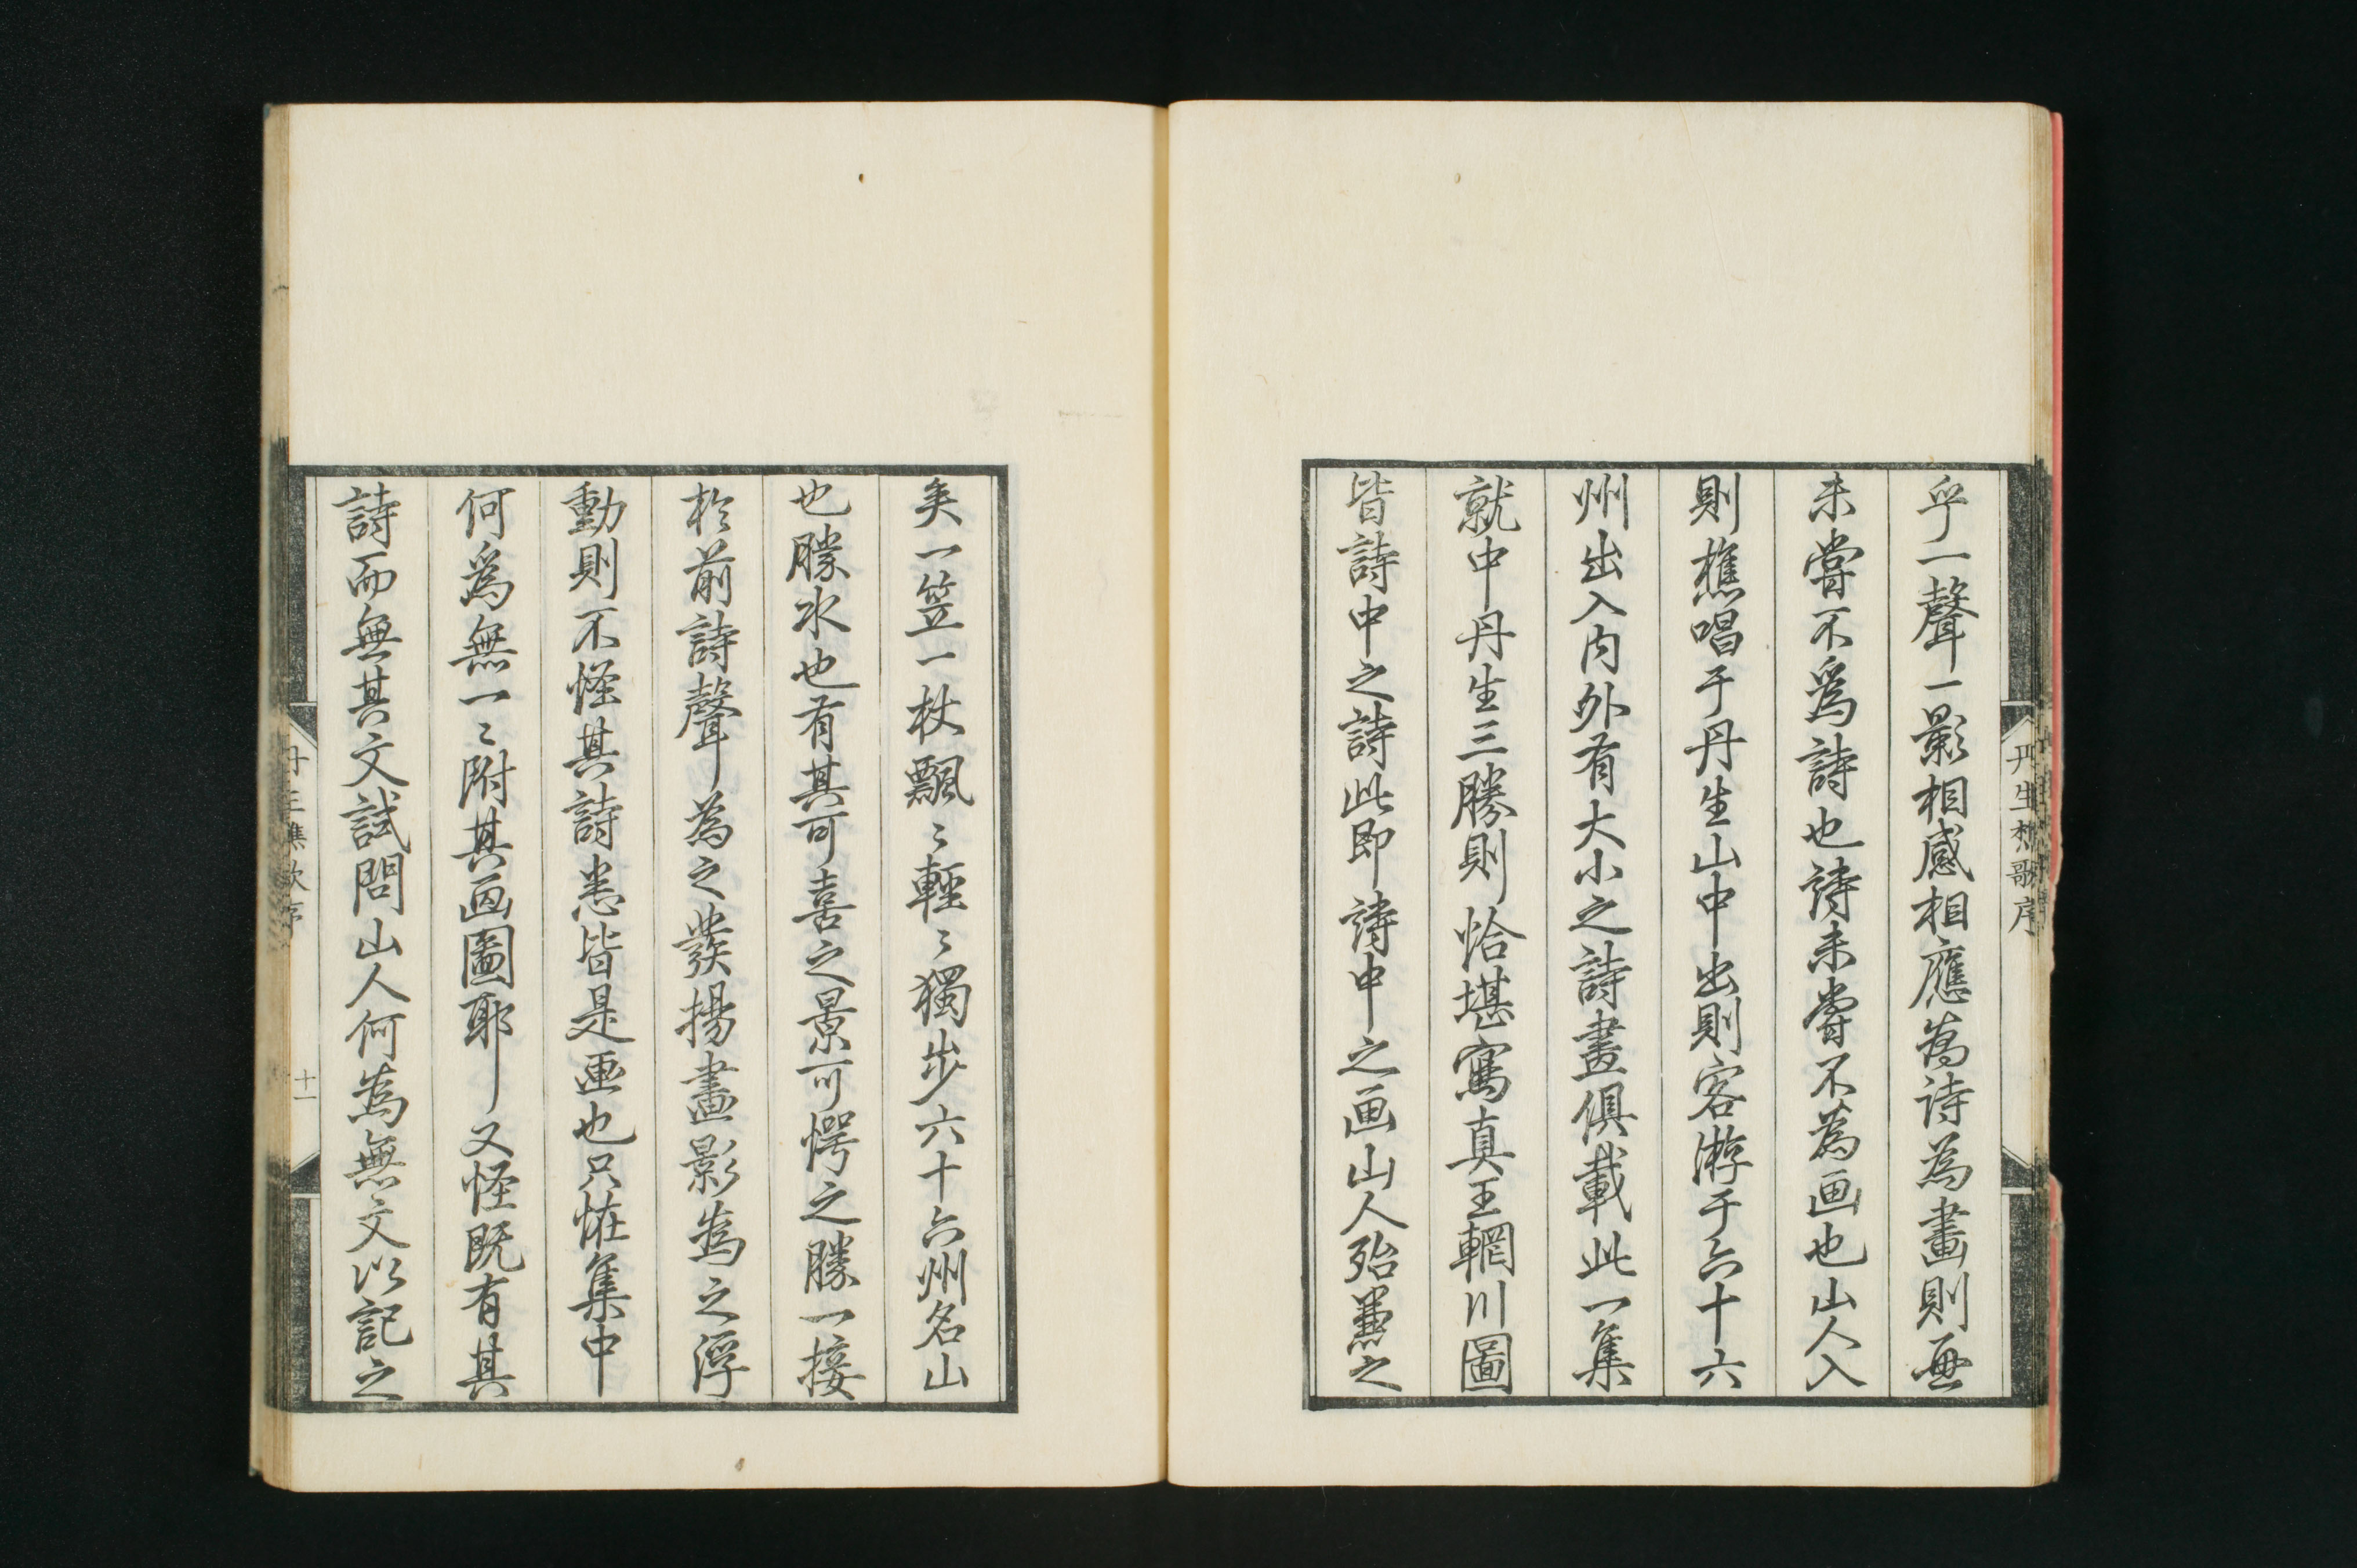 丹生樵歌序
乎一聲一影相感相應為詩為畫則無
未嘗不為詩也詩未嘗不為画也山人入
則樵唱于丹生山中出則客游于六十六
州出入内外有大小之詩畫俱載此一集
就中丹生三勝則恰堪寫真王輞川圖
皆詩中之詩此即詩中之画山人殆兼之
矣一笠一杖飄〻輕〻獨步六十六州名山
也勝水也有其可喜之景可愕之勝一接
於前詩聲為之發揚畫影為之浮
動則不怪其詩悉皆是画也只怪集中
何為無一〻附其画圖耶又怪既有其
詩而無其文試問山人何為無文以記之
十一